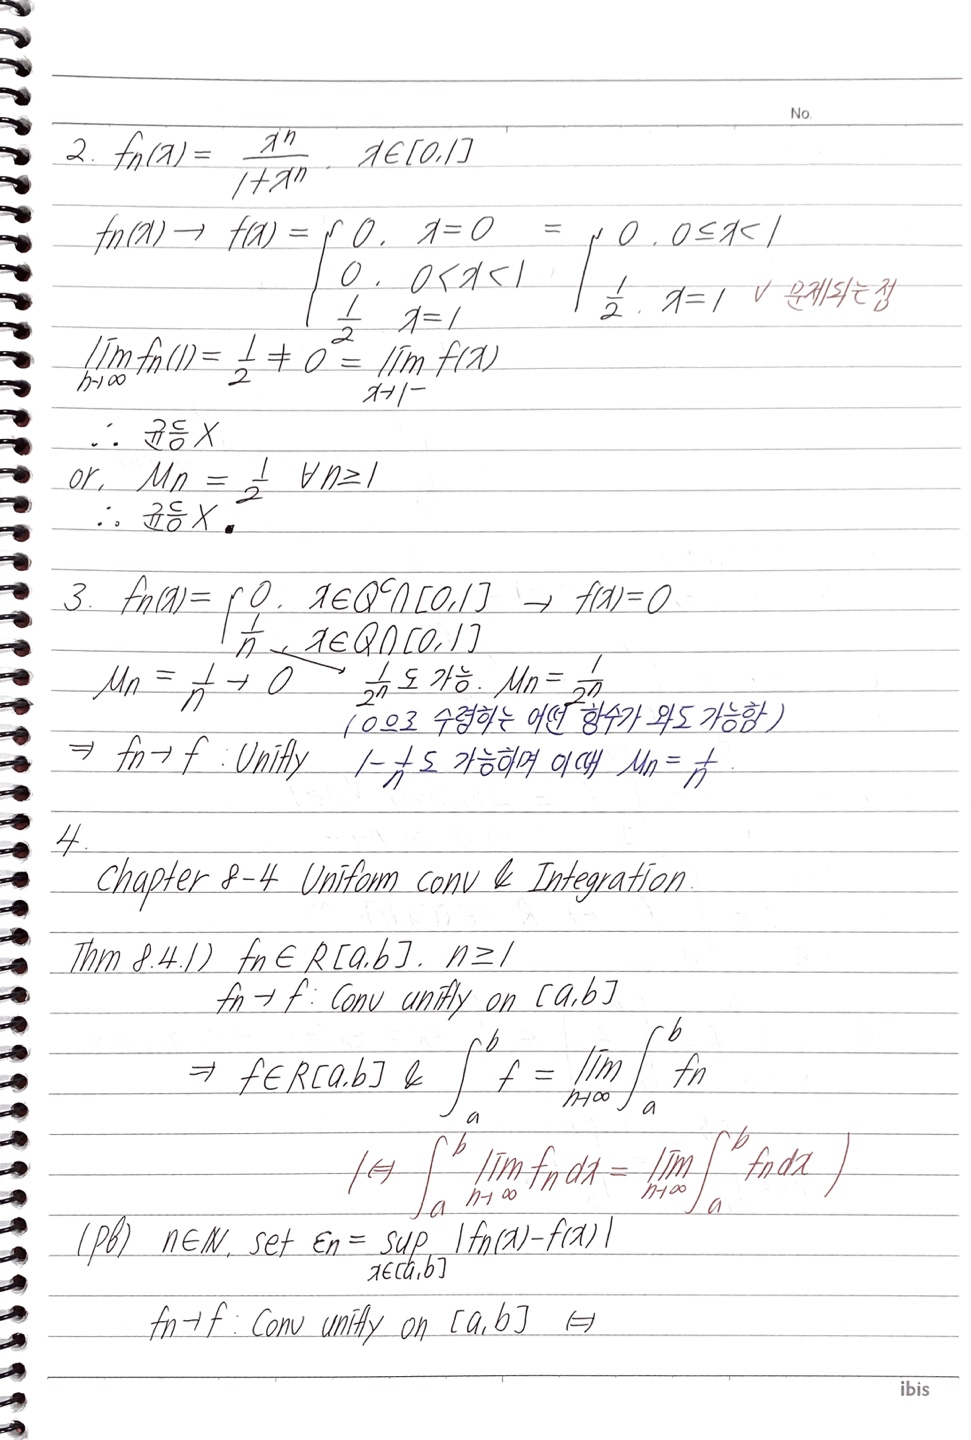 No.
2. fn(x) = xⁿ / 1+xⁿ . x∈[0,1]
fn(x) → f(x) = { 0. x=0 = { 0. 0≤x<1
0. 0<x<1
1/2 x=1 1/2. x=1 ∨ 문제되는 점
lim n→∞ fn(1) = 1/2 ≠ 0 = lim x→1- f(x)
∴ 균등 X
or, Mn = 1/2 ∀n≥1
∴ 균등 X.
3. fn(x) = { 0. x∈Qᶜ∩[0,1] → f(x)=0
1/n. x∈Q∩[0,1]
Mn = 1/n → 0 1/2ⁿ도 가능. Mn = 1/2ⁿ
(0으로 수렴하는 어떤 함수가 와도 가능함)
⇒ fn → f : Unifly 1-1/n도 가능하며 이때 Mn = 1/n.
4.
Chapter 8-4 Uniform conv & Integration.
Thm 8.4.1) fn∈R[a,b]. n≥1
fn → f : Conv unifly on [a,b]
⇒ f∈R[a,b] & ∫ₐᵇ f = lim n→∞ ∫ₐᵇ fn
(⇔ ∫ₐᵇ lim n→∞ fn dx = lim n→∞ ∫ₐᵇ fn dx)
(pf) n∈ℕ, set εn = sup x∈[a,b] |fn(x)-f(x)|
fn → f : Conv unifly on [a,b] ⇔
ibis